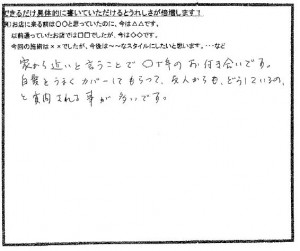 できるだけ具体的に書いていただけるとうれしさが倍増します！
例）お店に来る前は〇〇と思っていたのに、今は△△です。
以前通っていたお店では□□でしたが、今は〇〇です。
今回の施術は××でしたが、今後は～～なスタイルにしたいと思います。…など
家から近いと言うことで〇十年のお付き合いです。
白髪をうまくカバーしてもらって、友人からも、どうしているの、
と質問される事が多いです。